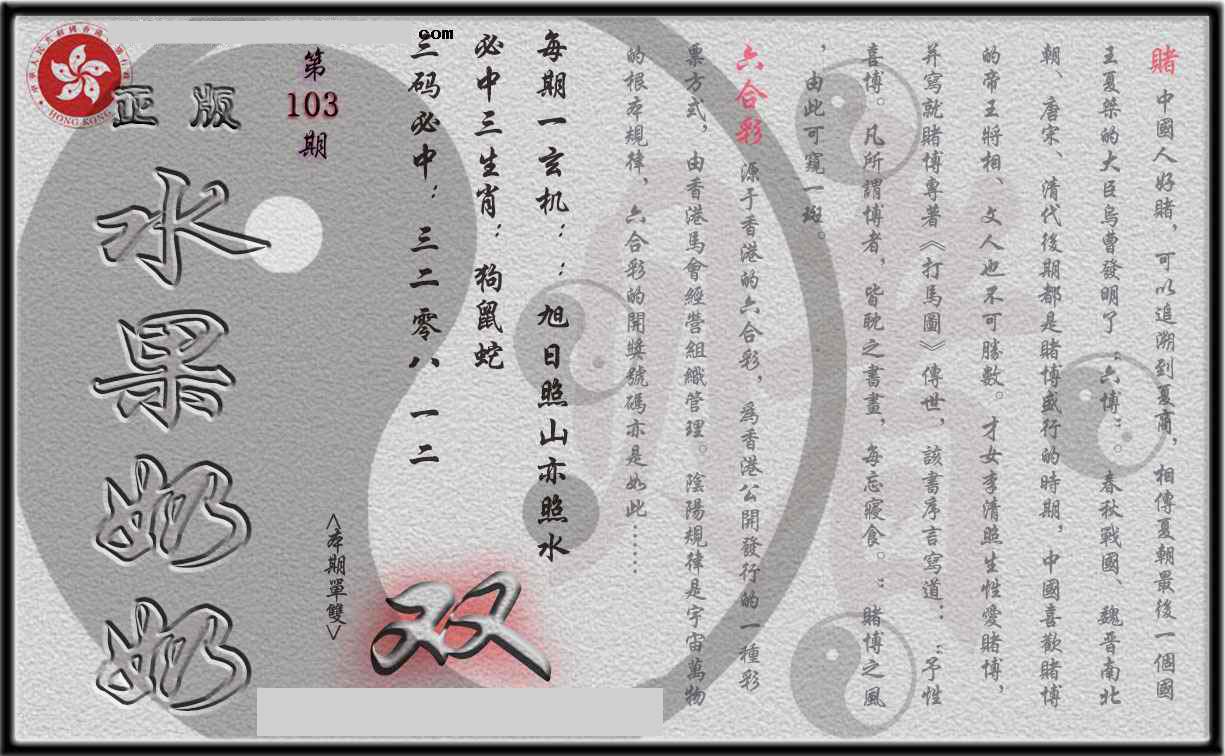 com
正版
水果奶奶
第
103
期
三码必中：三二零八一二
必中三生肖：狗鼠蛇
每期一玄机：：旭日照山亦照水
<本期單雙>
双
賭 中國人好賭，可以追溯到夏商，相傳夏朝最後一個國
王夏桀的大臣烏曹發明了：六博：。春秋戰國、魏晋南北
朝、唐宋、清代後期都是賭博盛行的時期，中國喜歡賭博
的帝王將相、文人也不可勝數。才女李清照生性愛賭博，
并寫就賭博專著《打馬圖》傳世，該書序言寫道：：予性
喜博。凡所謂博者，皆耽之書畫，每忘寢食。：賭博之風
，由此可窺一斑。
六合彩 源于香港的六合彩，爲香港公開發行的一種彩
票方式，由香港馬會經營組織管理。陰陽規律是宇宙萬物
的根本規律、六合彩的開獎號碼亦是如此……
HONG KONG